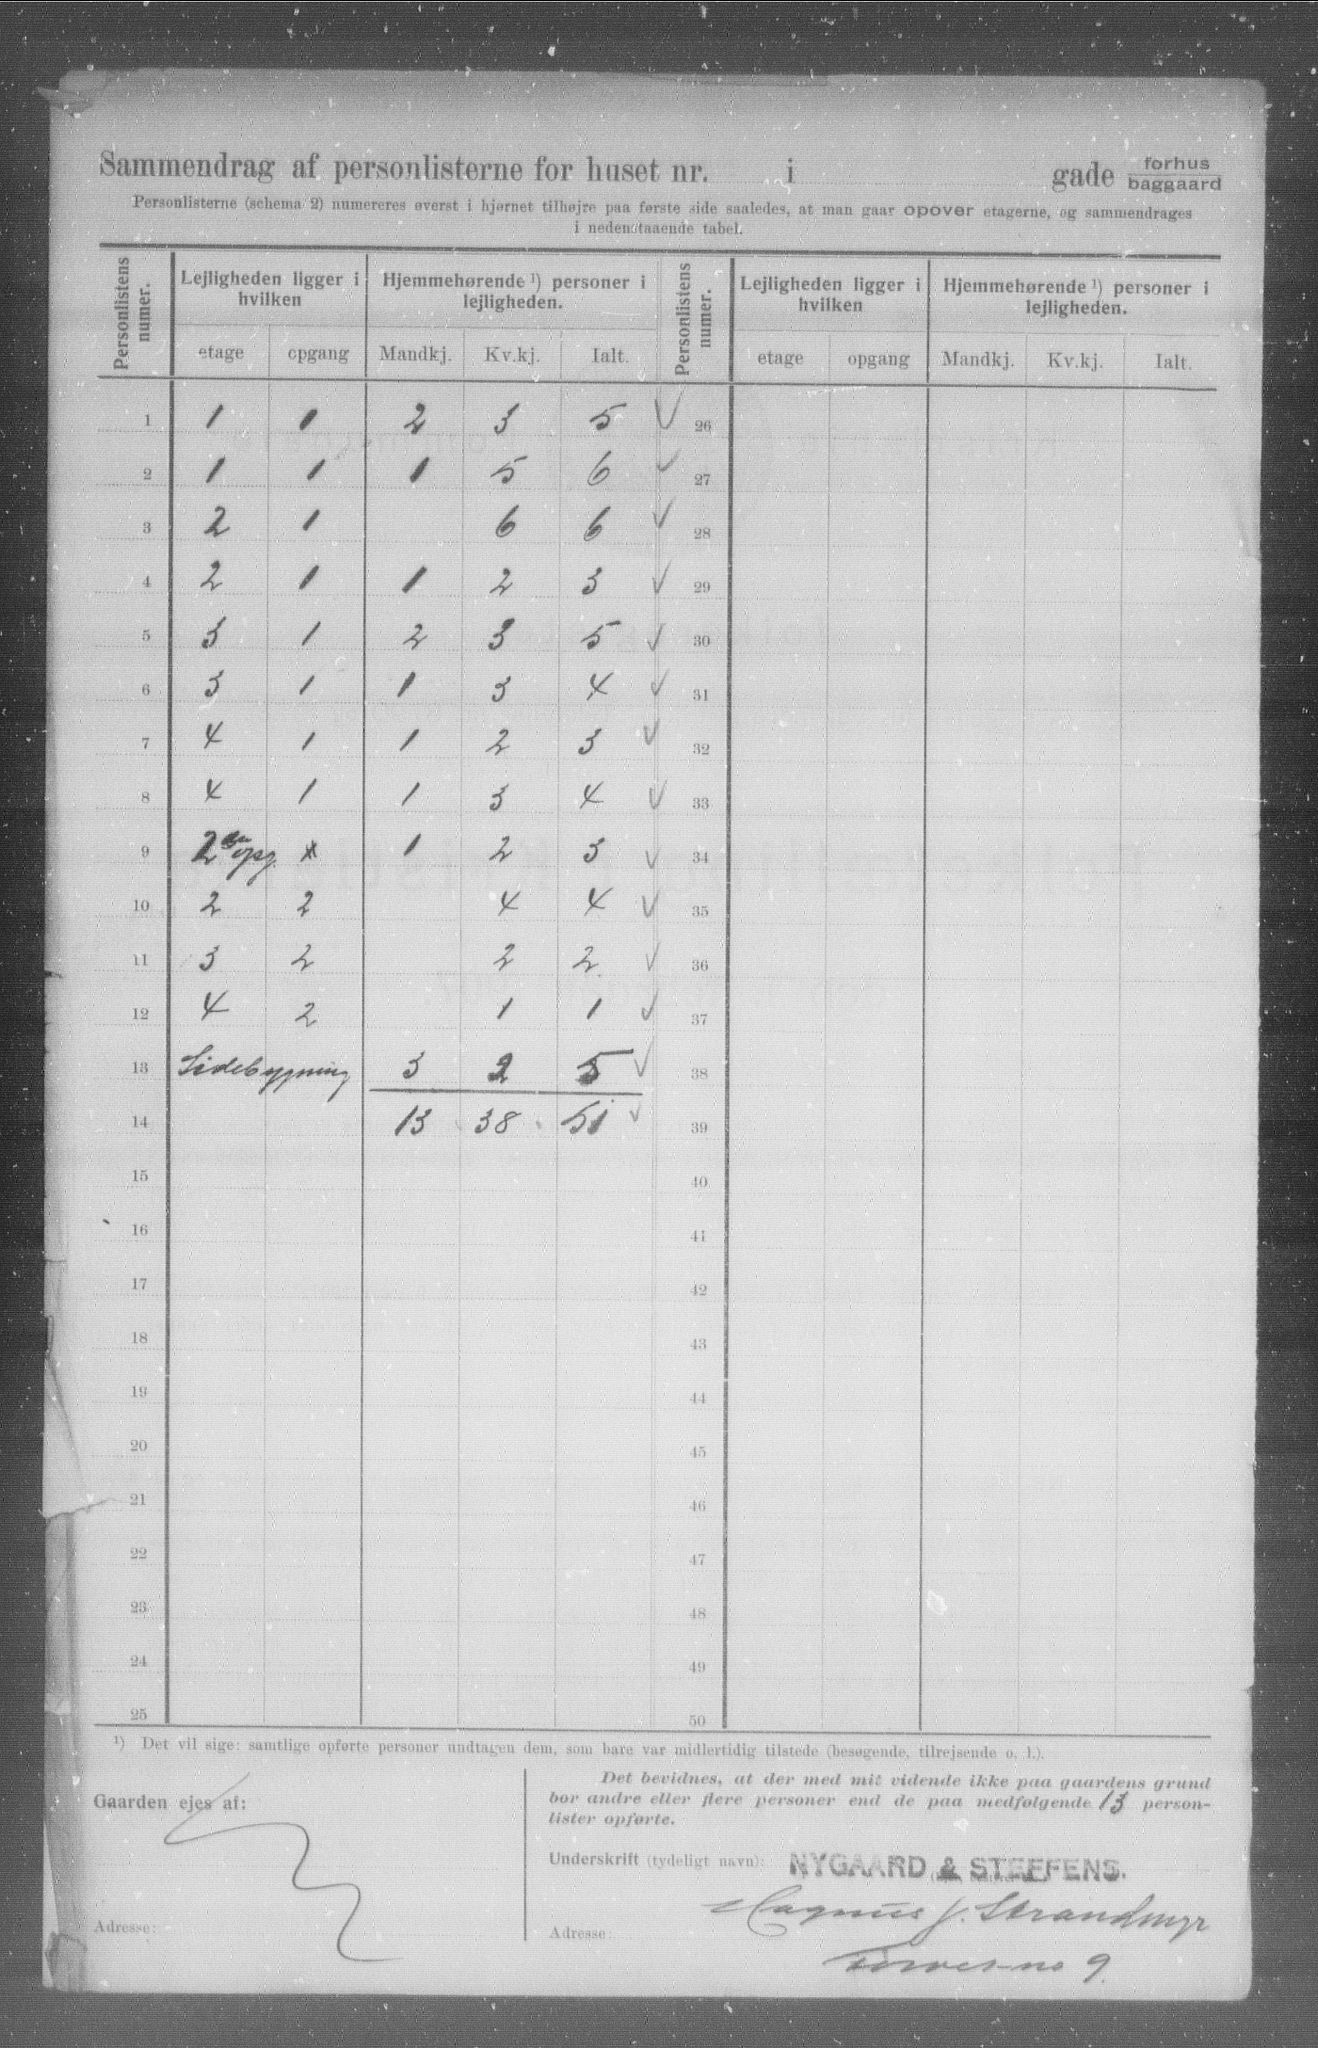 Sammendrag af personlisterne for huset nr. i gade forhus
baggaard
Personlisterne (schema 2) numereres øverst i hjørnet tilhøjre paa første side saaledes, at man gaar opover etagerne, og sammendrages
i nedenstaaende tabel.
Personlistens numer. Lejligheden ligger i hvilken Hjemmehørende ¹) personer i lejligheden. Personlistens numer. Lejligheden ligger i hvilken Hjemmehørende ¹) personer i lejligheden.
etage opgang Mandkj. Kv.kj. Ialt. etage opgang Mandkj. Kv.kj. Ialt.
1 1 1 2 3 5 ✓ 26
2 1 1 1 5 6 ✓ 27
3 2 1 6 6 ✓ 28
4 2 1 1 2 3 ✓ 29
5 3 1 2 3 5 ✓ 30
6 3 1 1 3 4 ✓ 31
7 4 1 1 2 3 ✓ 32
8 4 1 1 3 4 ✓ 33
9 2 opg. 1 2 3 ✓ 34
10 2 2 4 4 ✓ 35
11 3 2 2 2 ✓ 36
12 4 2 1 1 ✓ 37
13 Sidebygning 3 2 5 ✓ 38
14 13 38 51 ✓ 39
15 40
16 41
17 42
18 43
19 44
20 45
21 46
22 47
23 48
24 49
25 50
¹) Det vil sige: samtlige opførte personer undtagen dem, som bare var midlertidig tilstede (besøgende, tilrejsende o. l.).
Gaarden ejes af:
Adresse:
Det bevidnes, at der med mit vidende ikke paa gaardens grund
bor andre eller flere personer end de paa medfølgende 13 person-
lister opførte.
Underskrift (tydeligt navn): NYGAARD & STEFFENS.
Magnus J. Strandmyr
Adresse:
9.